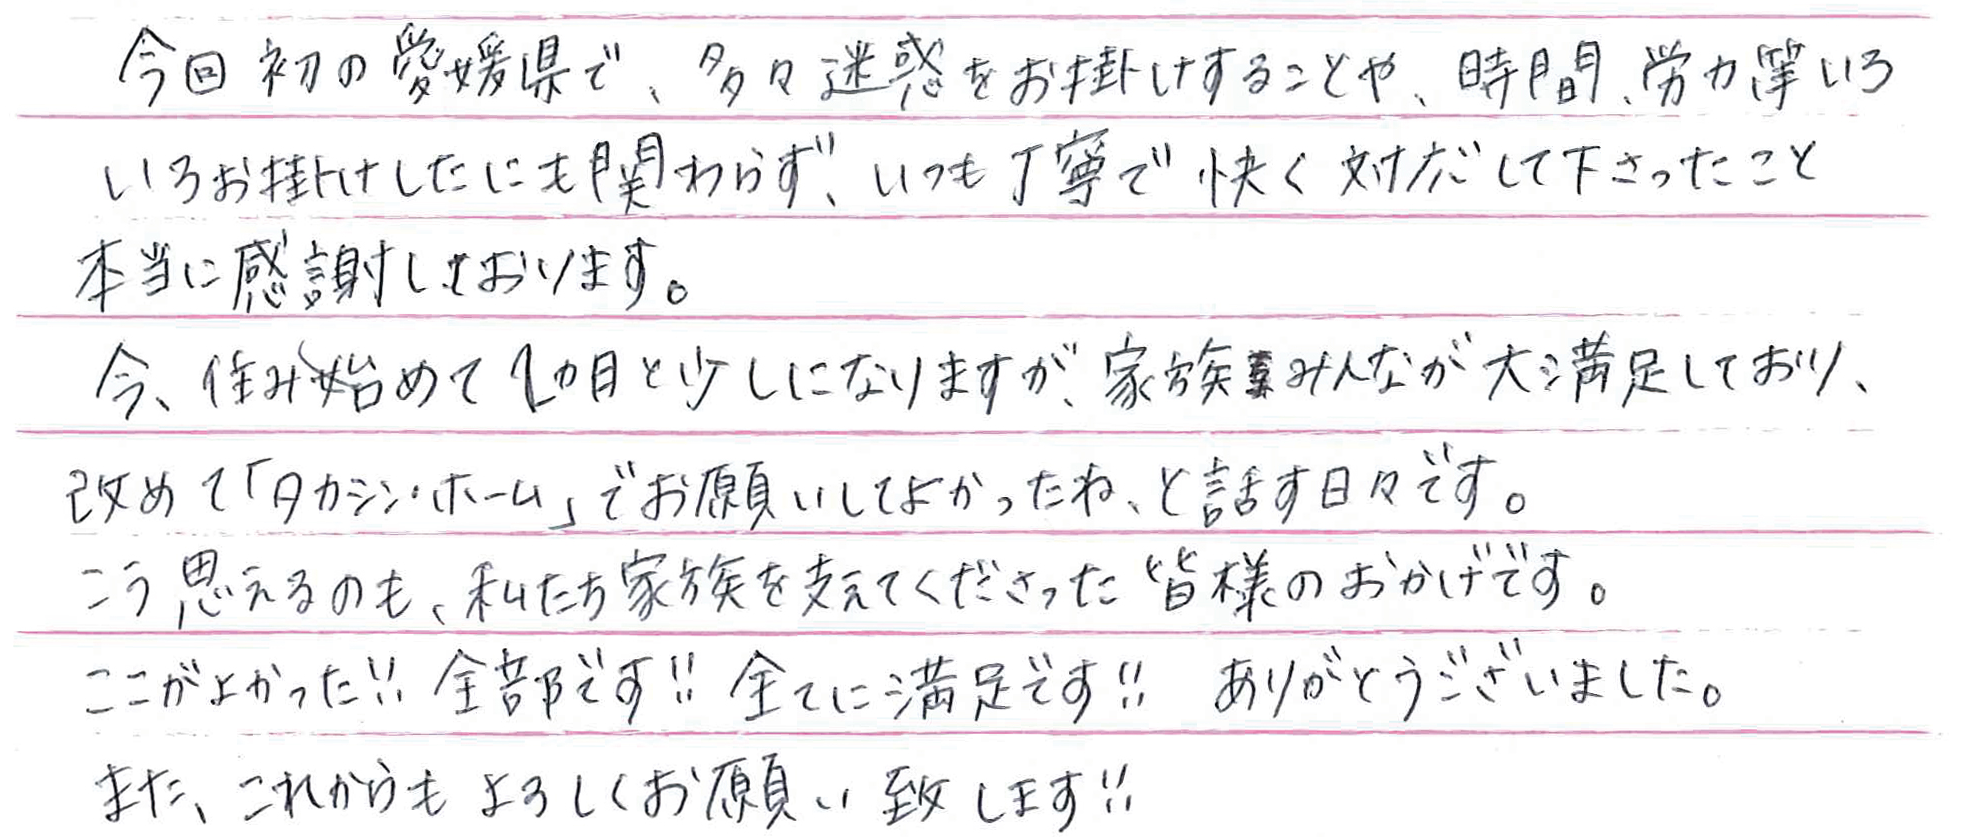 今回初の愛媛県で、多々迷惑をお掛けすることや、時間、労力等いろ
いろお掛けしたにも関わらず、いつも丁寧で快く対応して下さったこと
本当に感謝しております。
今、住み始めて1カ月と少しになりますが、家族みんなが大満足しており、
改めて「タカシン・ホーム」でお願いしてよかったね、と話す日々です。
こう思えるのも、私たち家族を支えてくださった皆様のおかげです。
ここがよかった!! 全部です!! 全てに満足です!! ありがとうございました。
また、これからもよろしくお願い致します!!